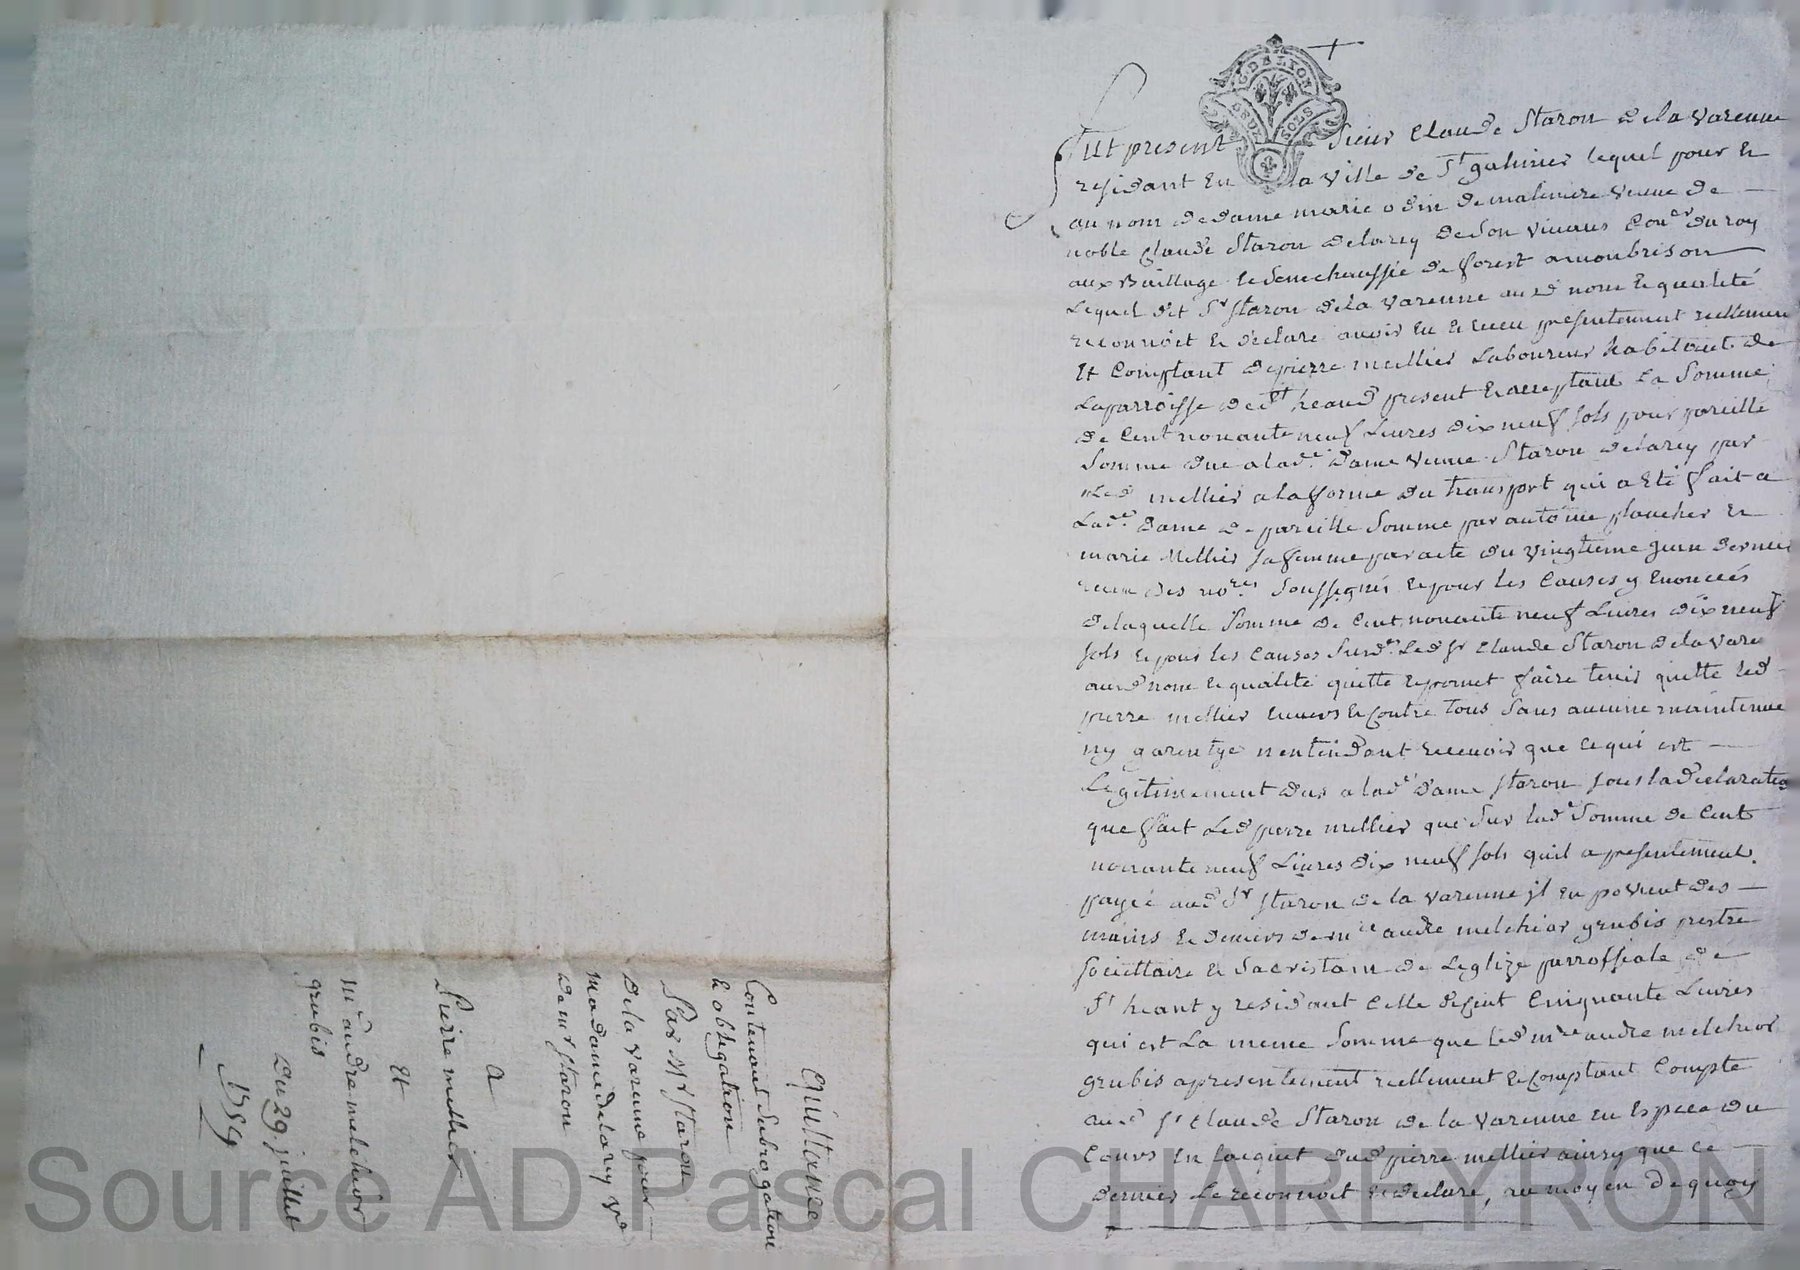 G. DE LION
DEUX SOLS
Fut present Sieur Claude Staron de la Varenne
residant en la ville de St galmier lequel pour et
au nom de dame marie odin de maliniere veuve de
noble Claude Staron delarey de son vivant Coner du roy
aux Baillage et Senechaussée de forest a monbrison
Lequel dit Sr Staron dela Varenne aud nom et qualité
reconnoit et declare avoir eu et receu presentement reellement
et Comptant de pierre mellier Laboureur habitant de
Laparroisse de st heand present et acceptant La Somme
de Cent nonante neuf Livres dix neuf sols pour pareille
Somme due a lade dame veuve Staron delarey par
Led mellier a la forme du transport qui a eté fait a
Lade dame de pareille Somme par antoine plancher et
marie Mellier sa femme par acte du vingtieme Juin dernier
receu des nores soussignés et pour les Causes y Enoncées
delaquelle Somme de Cent nonante neuf Livres dix neuf
sols et pour les Causes Susdes Led sr Claude Staron dela Vare
aud nom et qualité quitte et promet faire tenir quitte led
pierre mellier envers et Contre tous Sans aucune maintenue
ny garentye n'entendant recevoir que ce qui est
Legitimement deus a lade dame staron sous la declaration
que fait Led pierre mellier que Sur lade Somme de Cent
nonante neuf Livres dix neuf sols qu'il a presentement
payée aud Sr staron de la varenne jl en provient des
mains et deniers de me andré melchior grubis prestre
societtaire et Sacristain de Leglize parroissiale de
st heant y residant Celle de sept Cinquante Livres
qui est La meme Somme que led mre andre melchior
grubis a presentement reellement et Comptant Compté
aud sr Claude Staron de la Varenne en Espece du
Cours En lacquit dud pierre mellier ainsy que ce
dernier Le reconnoit et declare, au moyen de quoy
Quittance
Contenant Subrogation
et obligation
Par Mr Staron
dela Varenne pour
Madame delarey ve
de mr staron
A
Pierre mellier
Et
me andre melchior
grubis
Du 29 juillet
1759
Source AD Pascal CHAREYRON